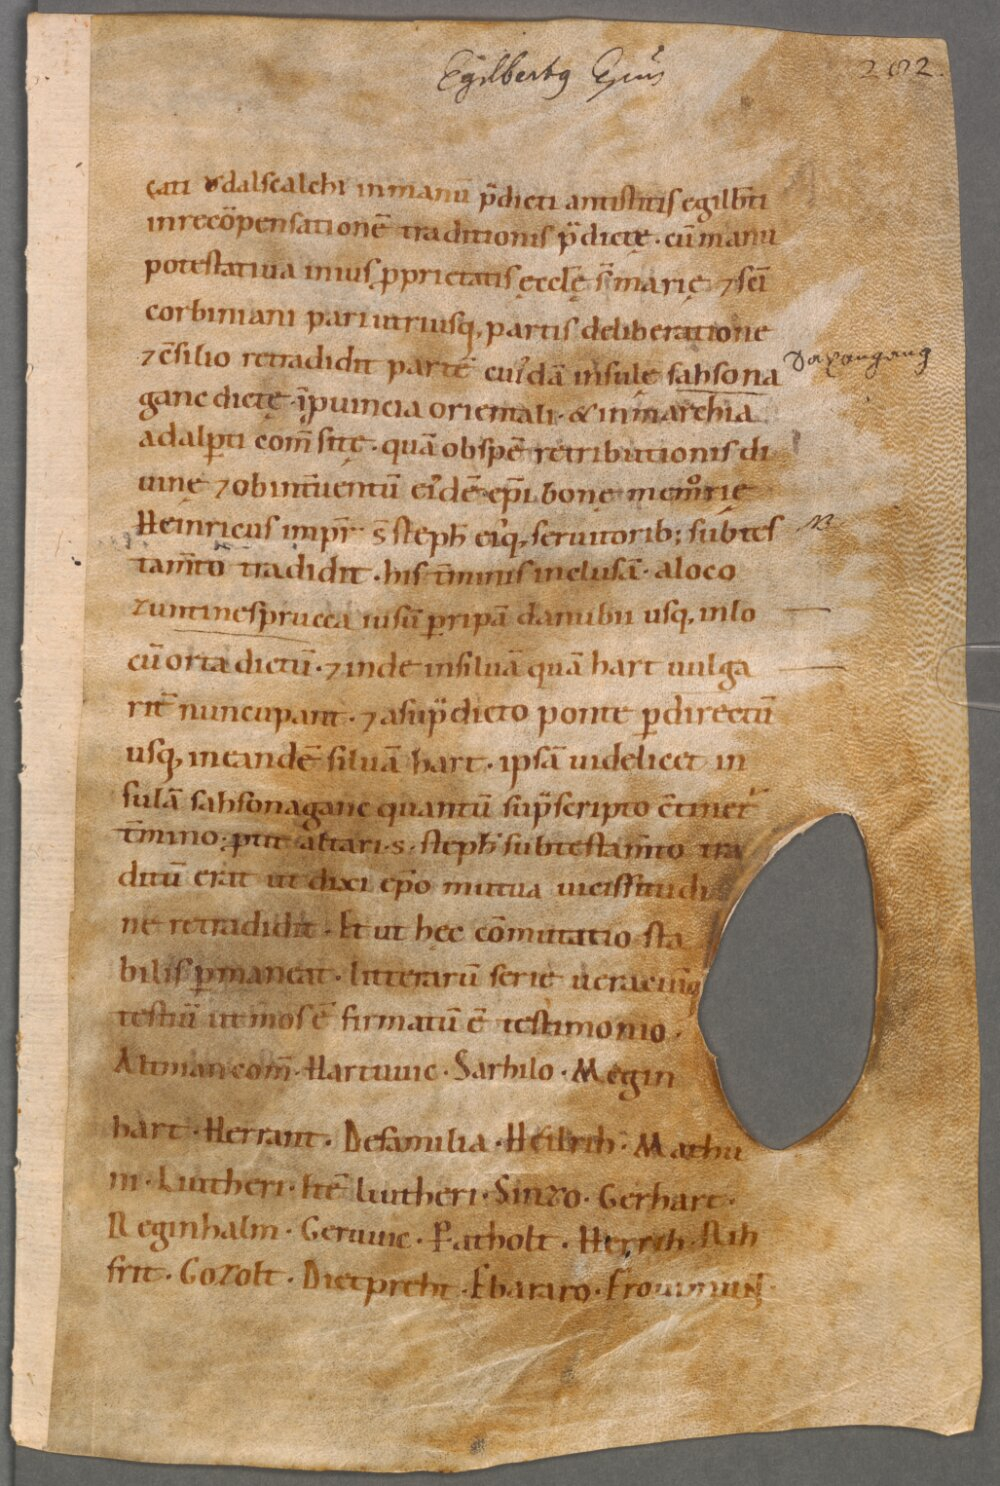 Egilbertꝯ Epūs
202.
cati ỏdalscalchi in manū p̄dicti antistitis egilb̄ti
in recōpensationē traditionis p̄dictę · cū manu
potestatiua in ius ꝓprietatis ęccłę s̄ marię ⁊ sc̄i
corbiniani pari utriusq, partis deliberatione
⁊ c̄silio retradidit partē cuı᷒dā insulę sahsona
Saxangang
ganc dictę · ī ꝓuincia orientali · & in marchia
adalꝑti com̄ sitę · quā ob spē retributionis di
uinę ⁊ ob int̄uentū eı᷒dē ep̄i bonę memorię
Heinricus imp̄r s̄ steph̄ eı᷒q, seruitorib; subtes
N
tam̄to tradidit · his t̄minis inclusā · a loco
zuntinesprucca iusū ꝑ ripā danubii usq, in lo
cū orta dictū · ⁊ inde in siluā quā hart uulga
rit̄ nuncupant · ⁊ a sup̄dicto ponte ꝑ directū
usq, in eandē siluā hart · ipsā uidelicet in
sulā sahsonaganc quantū sup̄scripto c̄tinet᷒
t̄mino; put altari · s · steph̄ sub testam̄to tra
ditū erat ut dixi ep̄o mutua uicissitudi
ne retradidit · Et ut hęc cōmutatio sta
bilis ꝑmaneat · litterarū serie ueraciūq,
testiū ut mos ē firmatū ē testimonio ·
Altman com̄ · Hartuuic · Sarhilo · Megin
hart · Herrant · De familia · Heilrih · Mathu
ni · Liutheri · Itē liutheri · Sinzo · Gerhart ·
Reginhalm · Geruuic · Patholt · Herrih · Rih
frit · Gozolt · Dietpreht · Ebararo · Frouumūt ·